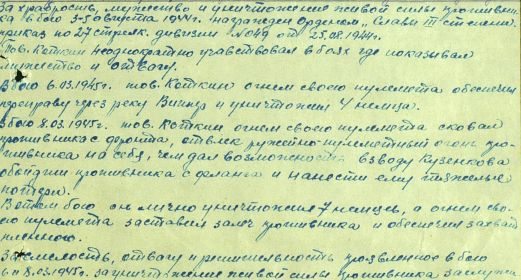 За храбрость, мужество и уничтожение живой силы противни-
ка в бою 3-5 августа 1944г. награжден орденом "Славы III степени
приказ по 27 стрелк. дивизии №049 от 25.08.1944г.
Тов. Коткин неоднократно участвовал в боях где показывал
мужество и отвагу.
В бою 6.03.1945г. тов. Коткин огнем своего пулемета обеспечил
переправу через реку и уничтожил 4 немца.
В бою 8.03.1945г. тов. Коткин огнем своего пулемета сковал
противника с фронта, отвлек ружейно-пулеметный огонь про-
тивника на себя, чем дал возможность взводу Кузенкова
обойти противника с фланга и нанести ему тяжелые
потери.
В этом бою он лично уничтожил 7 немцев, а огнем свое-
го пулемета заставил залеч противника и обеспечил захват
пленного.
За смелость, отвагу и решительность проявленное в бою
6 и 8.03.1945г. за уничтожение живой силы противника заслужи